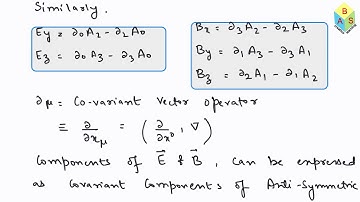 Similarly.
Ey = ∂₀A₂ - ∂₂A₀
Ez = ∂₀A₃ - ∂₃A₀
Bx = ∂₃A₂ - ∂₂A₃
By = ∂₁A₃ - ∂₃A₁
Bz = ∂₂A₁ - ∂₁A₂
∂μ = Co-variant Vector operator
≡ ∂/∂xμ = (∂/∂x⁰, ∇)
Components of E⃗ & B⃗, can be expressed
as Covariant Components of Anti-Symmetric
B
A S